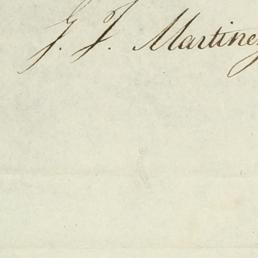 G. F. Martinez